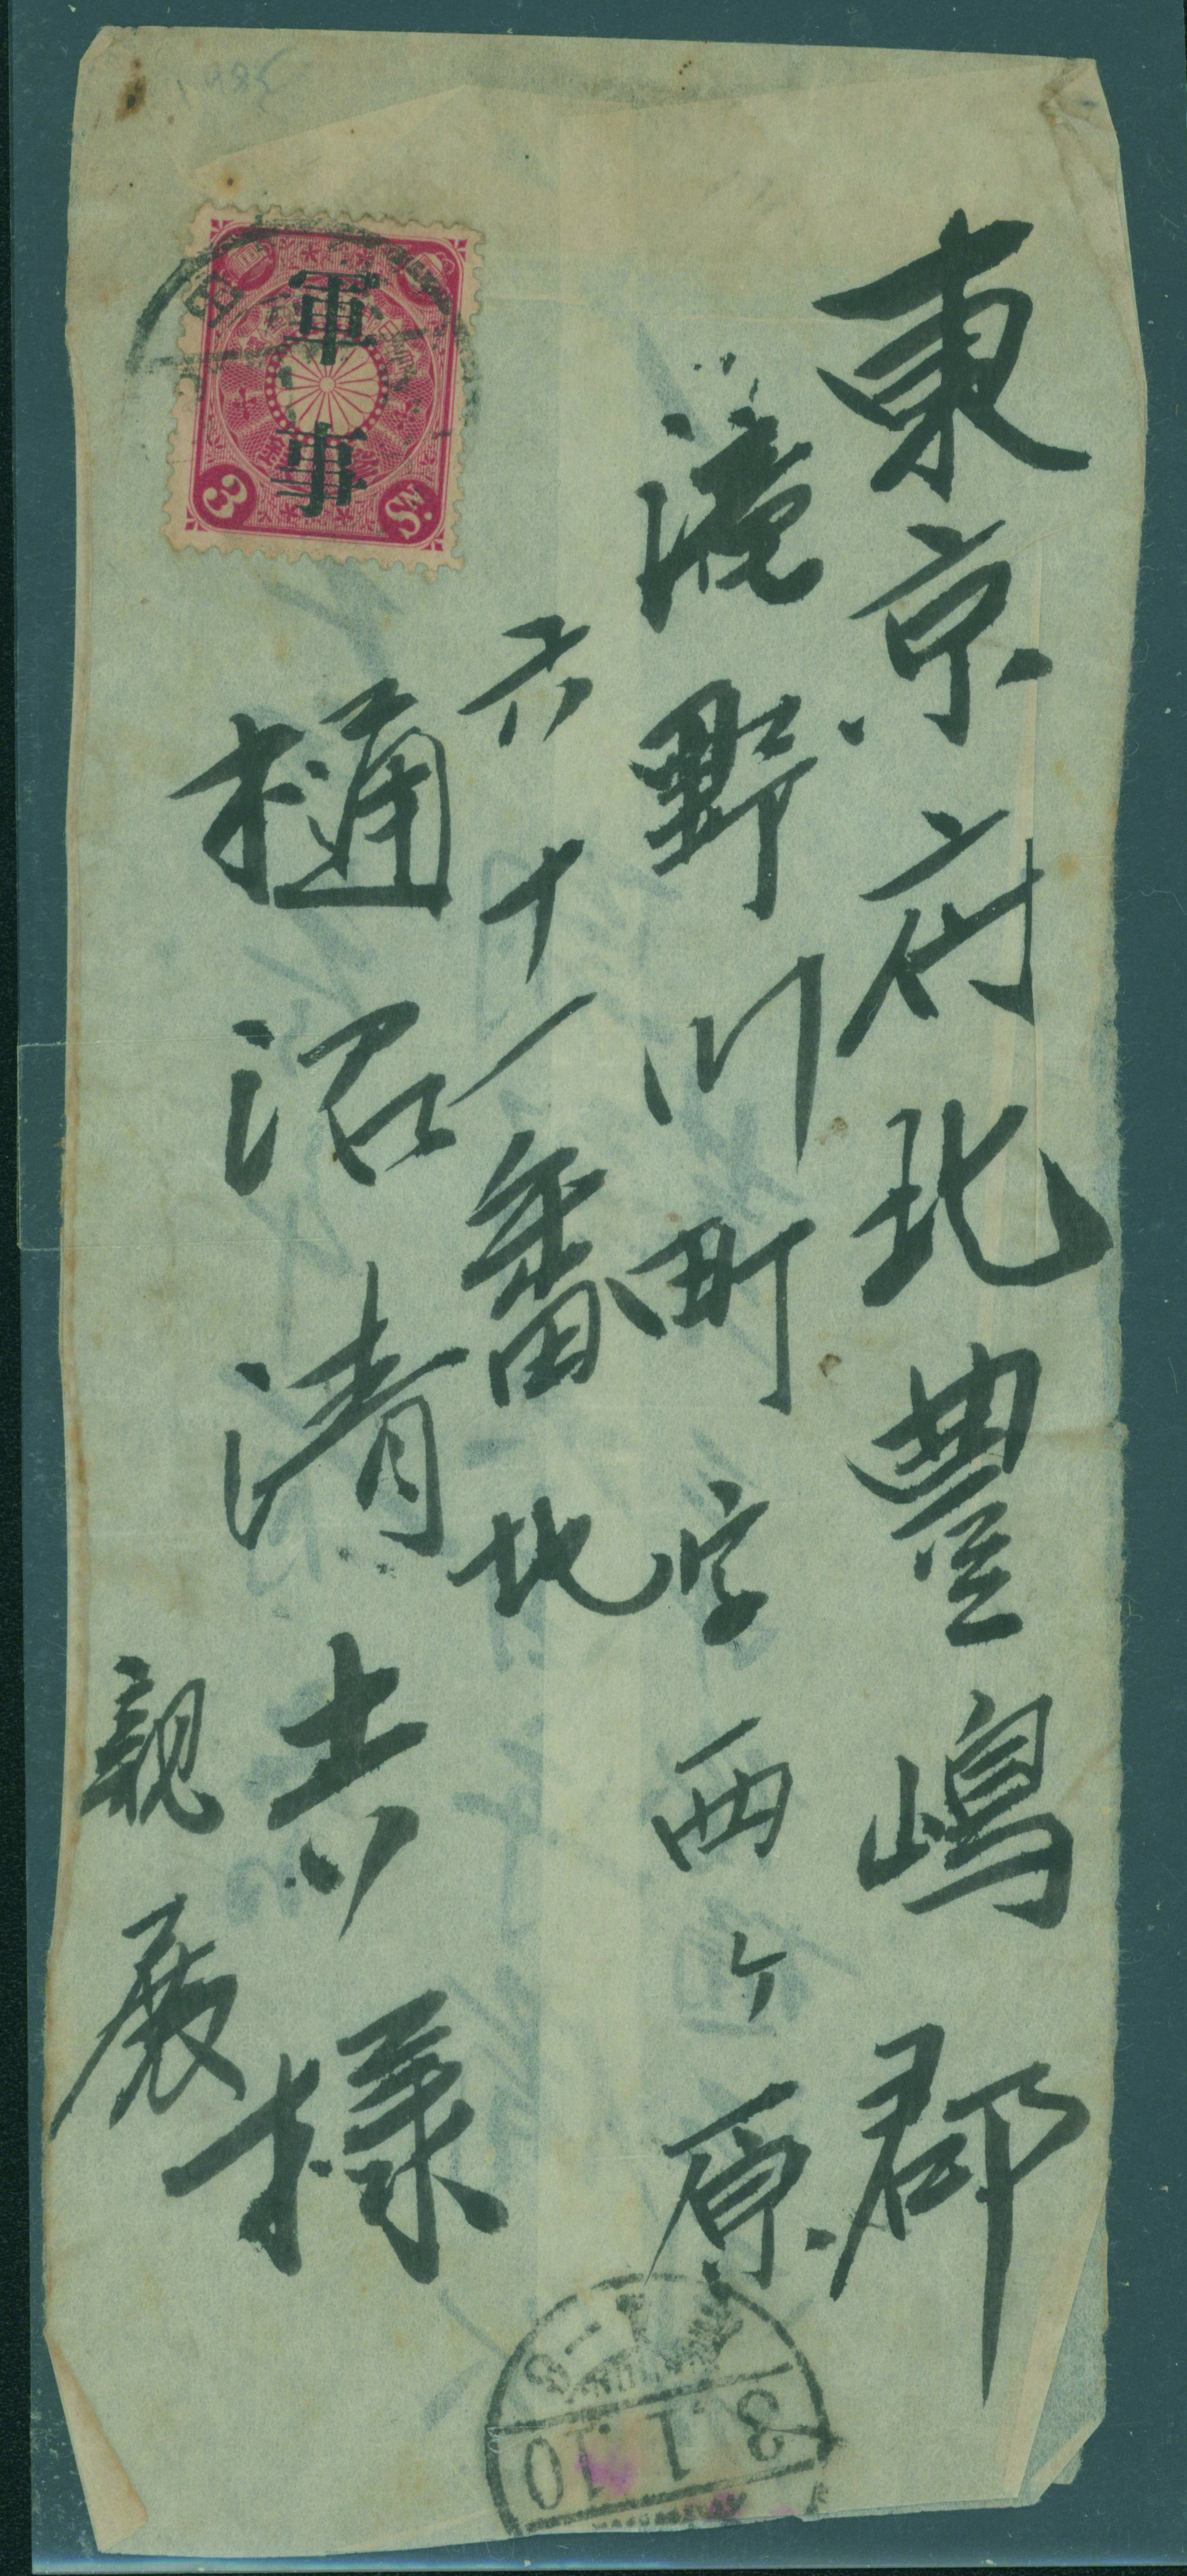 東京府北豊嶋郡
滝野川町字西ヶ原
六十一番地
樋沼清吉様
親展
軍事
3 Sn.
3.1.10